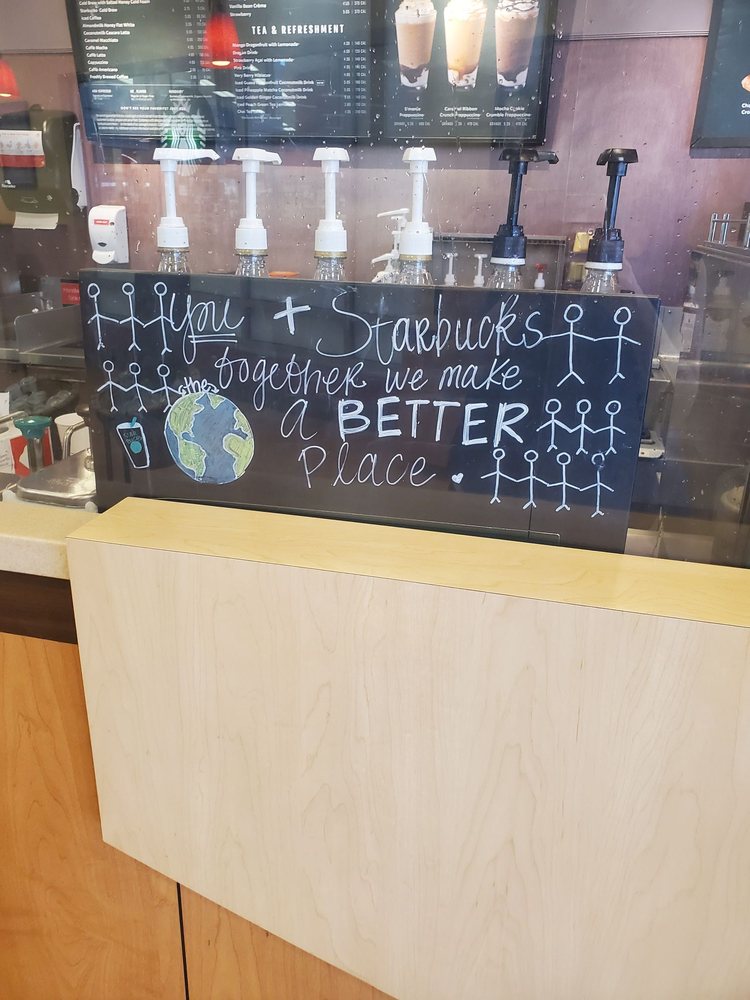 Cold Brew with Salted Honey Cold Foam
Starbucks Cold Brew
Iced Coffee
Almondmilk Honey Flat White
Coconutmilk Cascara Latte
Caramel Macchiato
Caffè Mocha
Caffè Latte
Cappuccino
Caffè Americano
Freshly Brewed Coffee
DON'T SEE YOUR FAVORITE? JUST ASK.
Vanilla Bean Crème
Strawberry
TEA & REFRESHMENT
Mango Dragonfruit with Lemonade
Dragon Drink
Strawberry Açaí with Lemonade
Pink Drink
Very Berry Hibiscus
Iced Guava Passionfruit Coconutmilk Drink
Iced Pineapple Matcha Coconutmilk Drink
Iced Golden Ginger Coconutmilk Drink
Iced Peach Green Tea Lemonade
Chai Tea
S'mores
Frappuccino
Caramel Ribbon
Crunch Frappuccino
Mocha Cookie
Crumble Frappuccino
You + Starbucks
together we make
the
a BETTER
place.